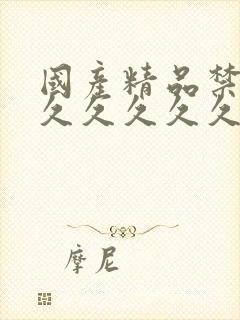 國產精品禁
久久久久久
摩尼